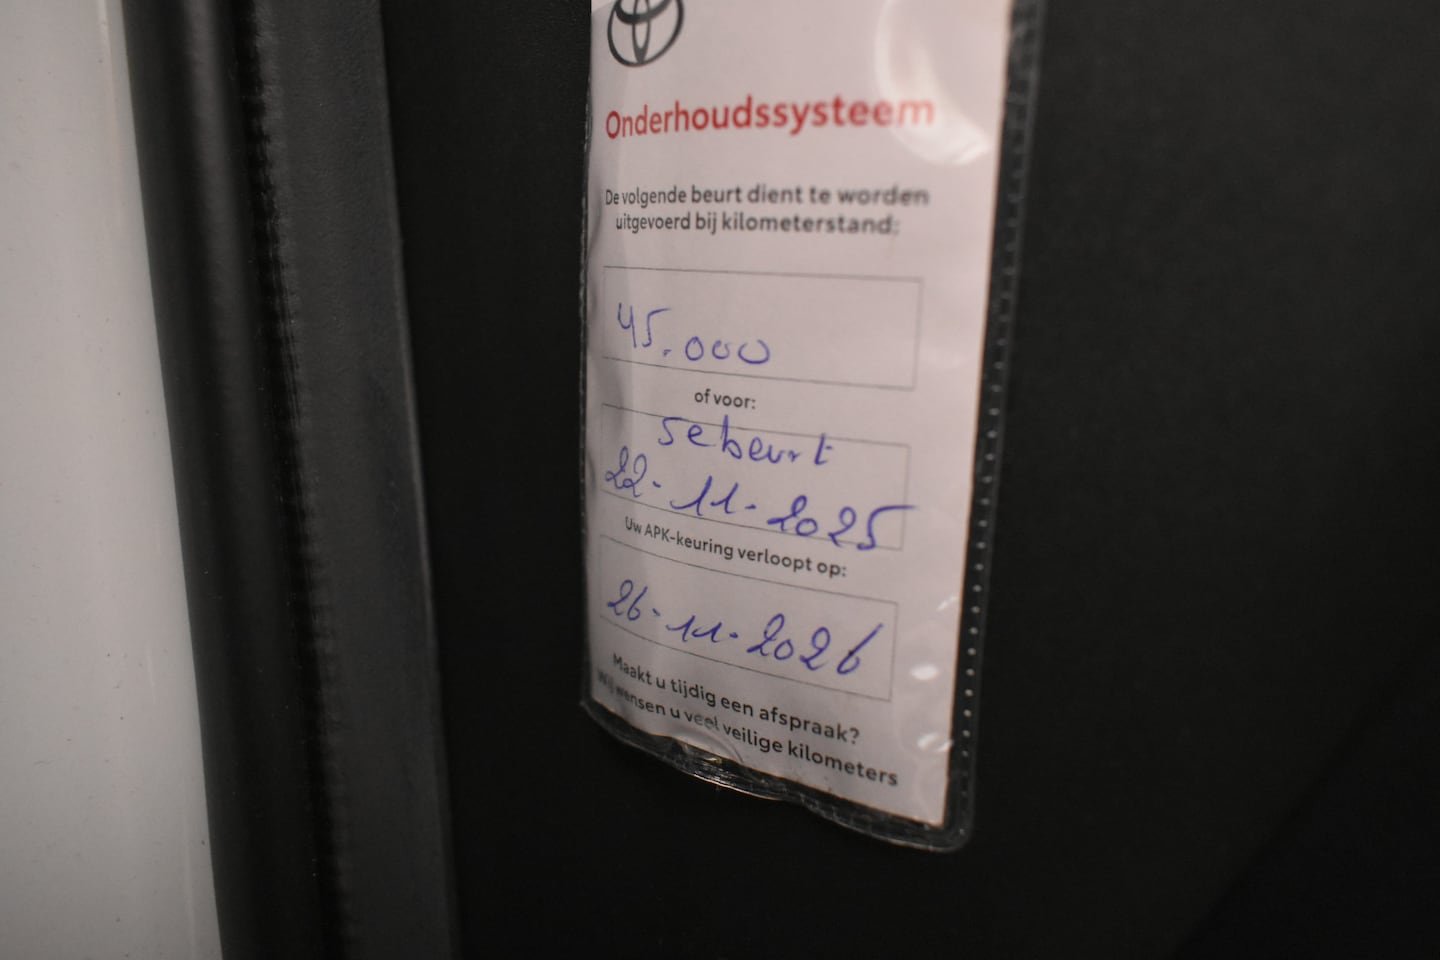 Onderhoudssysteem
De volgende beurt dient te worden
uitgevoerd bij kilometerstand:
45.000
of voor:
5e beurt
22-11-2025
Uw APK-keuring verloopt op:
26-11-2026
Maakt u tijdig een afspraak?
Wij wensen u veel veilige kilometers